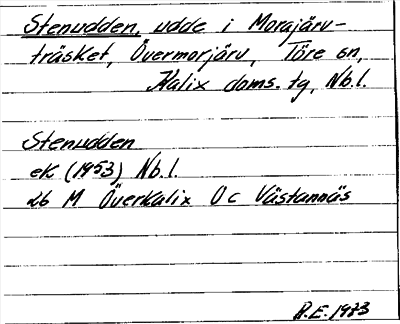 Stenudden, udde i Morajärv-
träsket, Övermorjärv, Töre sn,
Kalix doms. tg, Nb.l.
Stenudden
ek (1953) Nb.l.
26 M Överkalix 0 c Västannäs
R.E. 1973